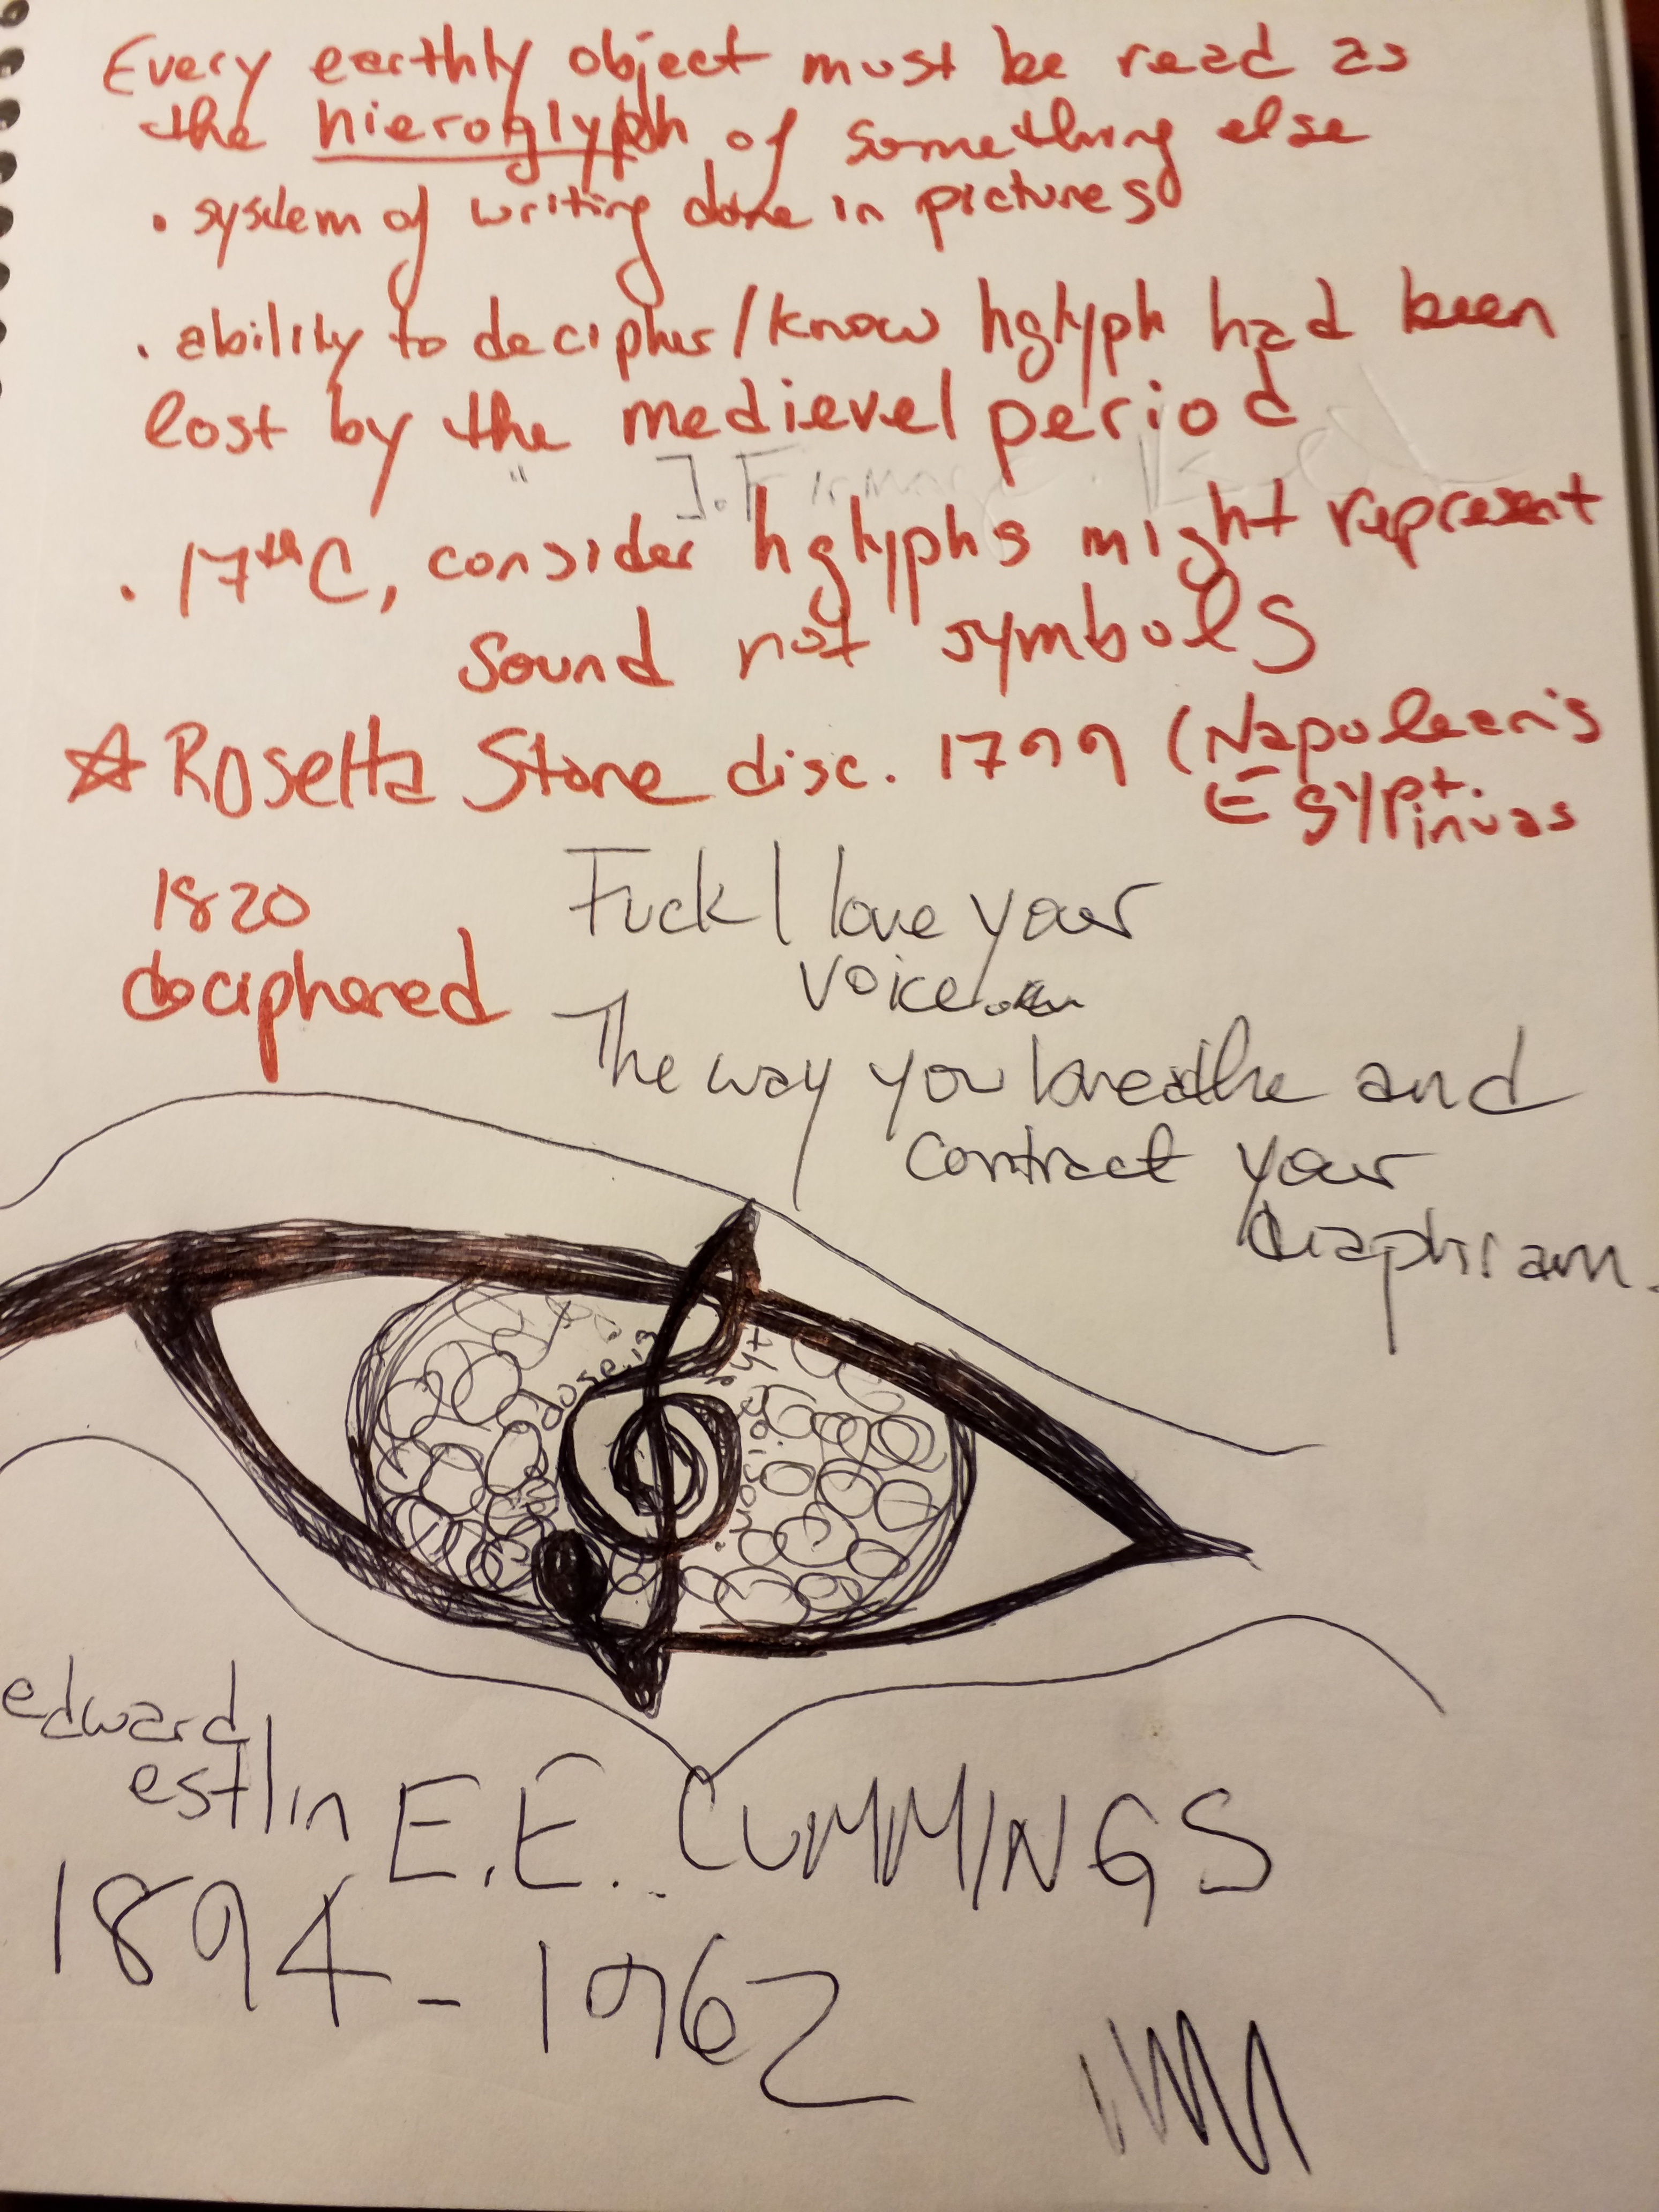 Every earthly object must be read as
the hieroglyph of something else
. system of writing done in pictures
. ability to decipher/know hglyph had been
lost by the medievel period
. 17th C, consider hglyphs might represent
sound not symbols
☆ Rosetta Stone disc. 1799 (Napolean's
Egypt.
invas
1820
deciphered
Fuck I love your
voice.
The way you breathe and
contract your
diaphram.
edward
estlin
E.E. CUMMINGS
1894-1962